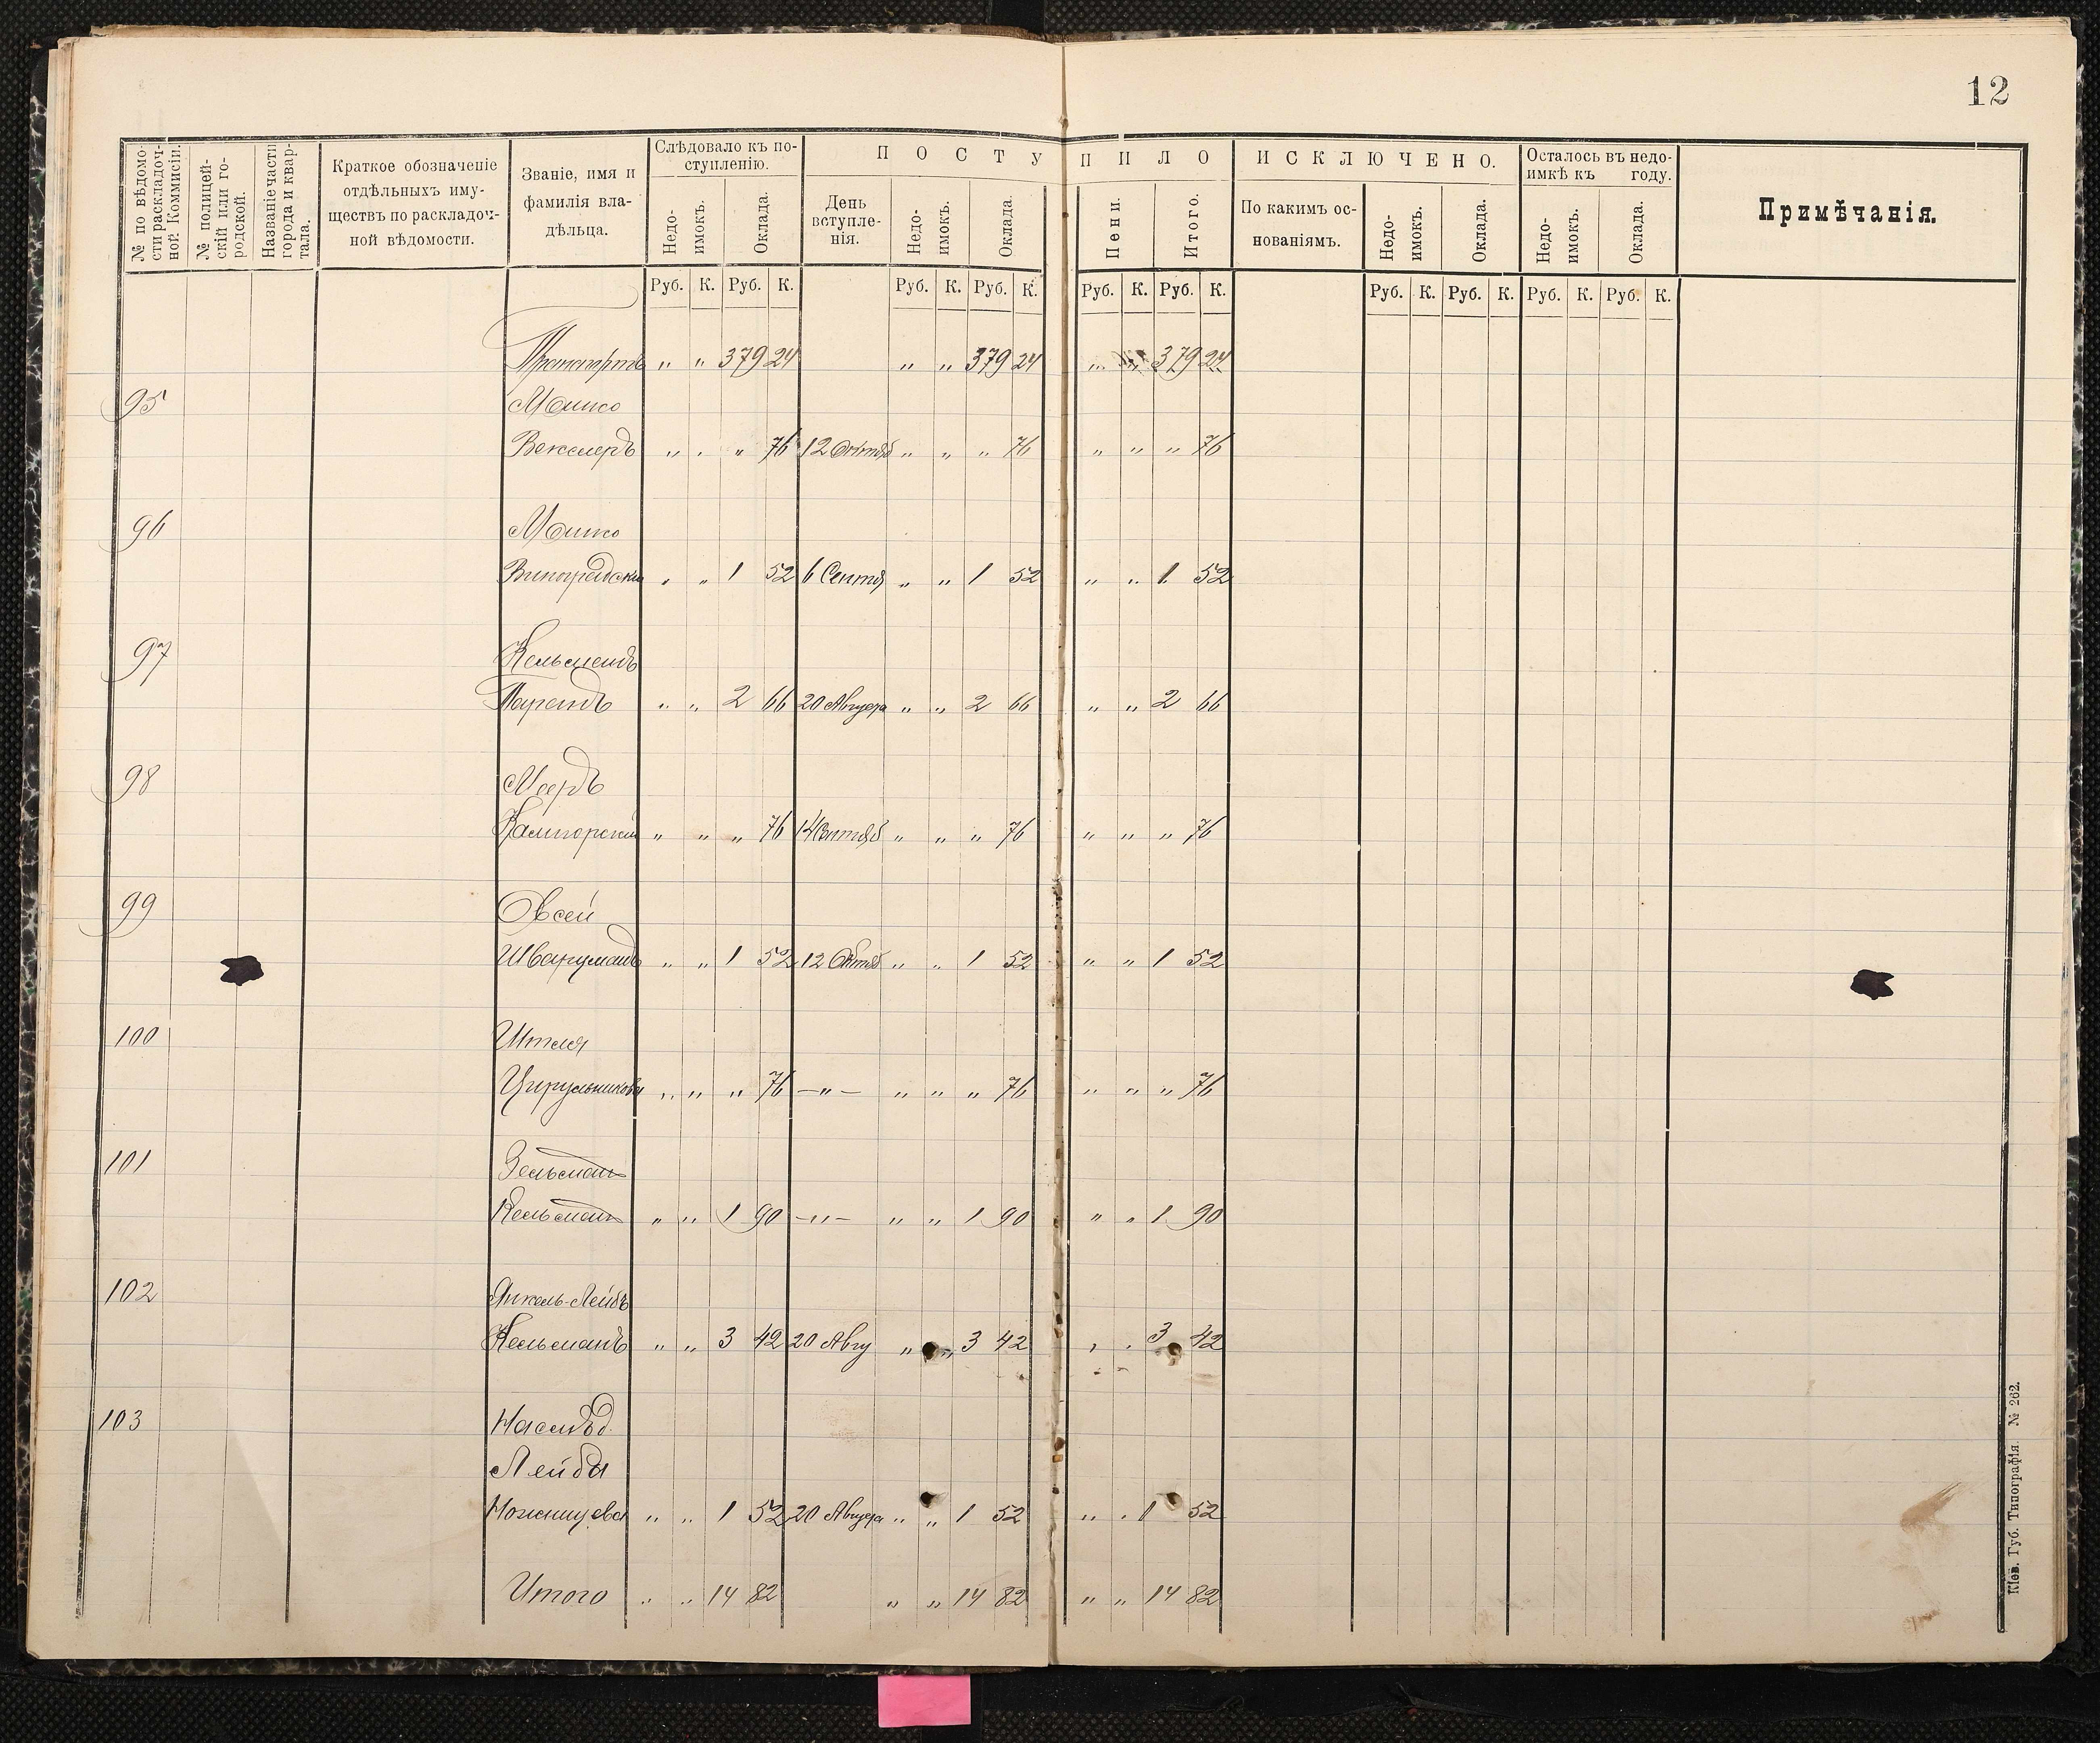 12
№ по вѣдомо-
сти раскладоч-
ной Коммисіи.
№ полицей-
скій или го-
родской.
Названіе части
города и квар-
тала.
Краткое обозначеніе
отдѣльныхъ иму-
ществъ по расклодоч-
ной вѣдомости.
Званіе, имя и
фамилія вла-
дѣльца.
Слѣдовало къ по-
ступленію.
Недо-
имокъ.
Оклада.
ПОСТУПИЛО
День
вступле-
нія.
Недо-
имокъ.
Оклада.
Пени.
Итого.
ИСКЛЮЧЕНО.
По какимъ ос-
нованіямъ.
Недо-
имокъ.
Оклада.
Осталось въ недо-
имкѣ къ году.
Недо-
имокъ.
Оклада.
Примѣчанія.
Руб. К. Руб. К. Руб. К. Руб. К. Руб. К. Руб. К. Руб. К. Руб. К. Руб. К. Руб. К.
Транспортъ " " 379 24 " " 379 24 " " 379 24
95 Мошко
Векслеръ " " " 76 12 Октяб " " " 76 " " " 76
96 Мошко
Виноградскій " " 1 52 6 Сентя " " 1 52 " " 1 52
97
" " 2 66 20 Августа " " 2 66 " " 2 66
98 Мееръ
" " " 76 14 Сентяб " " " 76 " " " 76
99 Овсей
Шварцманъ " " 1 52 12 Октяб " " 1 52 " " 1 52
100
Цирульникова " " " 76 —"— " " " 76 " " " 76
101 Зельманъ
Кельманъ " " 1 90 —"— " " 1 90 " " 1 90
102 Янкель-Лейбъ
Кельманъ " " 3 42 20 Авгу " " 3 42 " " 3 42
103 Наслѣд.
Лейбы
" " 1 52 20 Августа " " 1 52 " " 1 52
Итого " " 14 82 " " 14 82 " " 14 82
Кіев. Губ. Типографія. № 262.